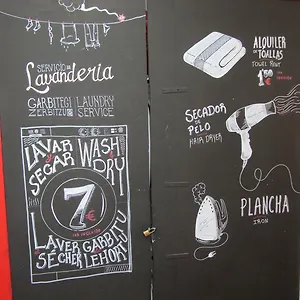 SERVICIO DE
Lavandería
GARBITEGI
ZERBITZUA
LAUNDRY
SERVICE
LAVAR Y
SECAR
WASH
DRY
7€
IVA INCLUIDO
LAVER
SÉCHER
GARBITU
LEHORTU
ALQUILER
DE TOALLAS
TOWEL RENT
1'50€
IVA INCLUIDO
SECADOR
DE
PELO
HAIR DRYER
PLANCHA
IRON